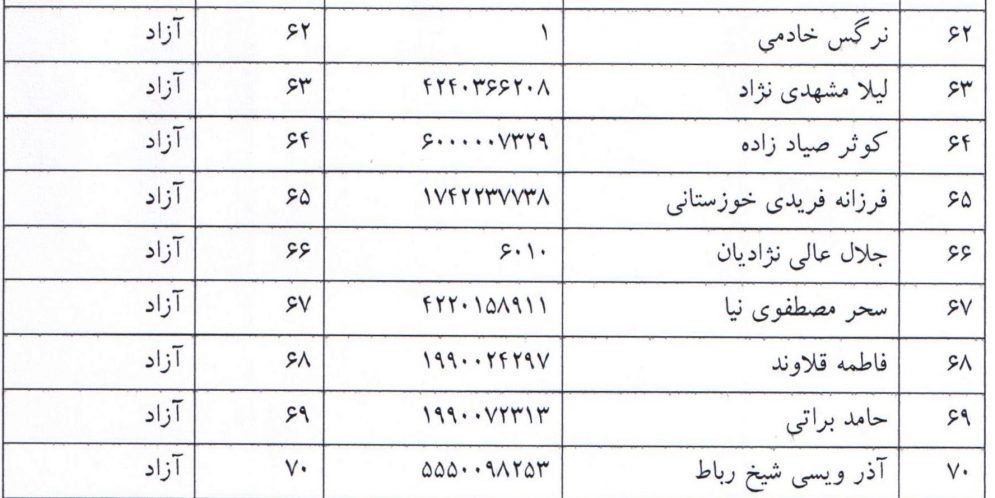 ۶۲ نرگس خادمی ۱ ۶۲ آزاد
۶۳ لیلا مشهدی نژاد ۴۲۴۰۳۶۶۲۰۸ ۶۳ آزاد
۶۴ کوثر صیاد زاده ۶۰۰۰۰۰۷۳۲۹ ۶۴ آزاد
۶۵ فرزانه فریدی خوزستانی ۱۷۴۲۲۳۷۷۳۸ ۶۵ آزاد
۶۶ جلال عالی نژادیان ۶۰۱۰ ۶۶ آزاد
۶۷ سحر مصطفوی نیا ۴۲۲۰۱۵۸۹۱۱ ۶۷ آزاد
۶۸ فاطمه قلاوند ۱۹۹۰۰۲۴۲۹۷ ۶۸ آزاد
۶۹ حامد براتی ۱۹۹۰۰۷۲۳۱۳ ۶۹ آزاد
۷۰ آذر ویسی شیخ رباط ۵۵۵۰۰۹۸۲۵۳ ۷۰ آزاد